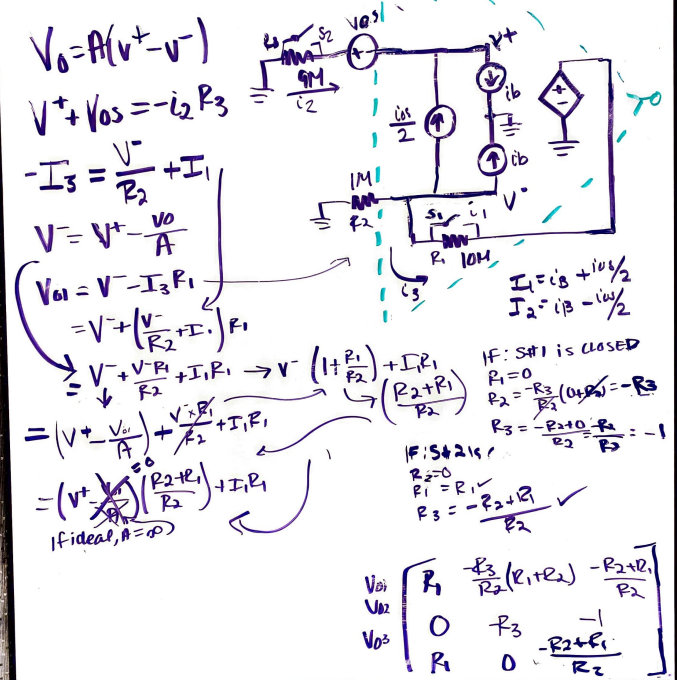 V₀ = A(v⁺ - v⁻)
V⁺ + V₀s = -i₂ R₃
-I₃ = V⁻/R₂ + I₁
V⁻ = V⁺ - V₀/A
V₀₁ = V⁻ - I₃R₁
= V⁻ + (V⁻/R₂ + I₁) R₁
= V⁻ + V⁻R₁/R₂ + I₁R₁ → V⁻ (1 + R₁/R₂) + I₁R₁
(R₂+R₁/R₂)
= (V⁺ - V₀₁/A) + V⁻×R₁/R₂ + I₁R₁
= 0
= (V⁺ - V₀₁/A) (R₂+R₁/R₂) + I₁R₁
If ideal, A = ∞
S₂
V₀s
9M
i₂
V⁺
ib
ios/2
+
-
V₀
ib
1M
R₂
V⁻
S₁ i₁
R₁ 10M
i₃
I₁ = iB + ios/2
I₂ = iB - ios/2
IF: S#1 is CLOSED
R₁ = 0
R₂ = -R₃/R₂ (0+R₂) = -R₃
R₃ = -R₂+0/R₂ = -R₂/R₂ = -1
IF: S#2 is
R₂ = 0
R₁ = R₁ ✓
R₃ = -R₂+R₁/R₂ ✓
V₀₁ [ R₁ -R₃/R₂ (R₁+R₂) -R₂+R₁/R₂ ]
V₀₂ 0 -R₃ -1
V₀₃ R₁ 0 -R₂+R₁/R₂